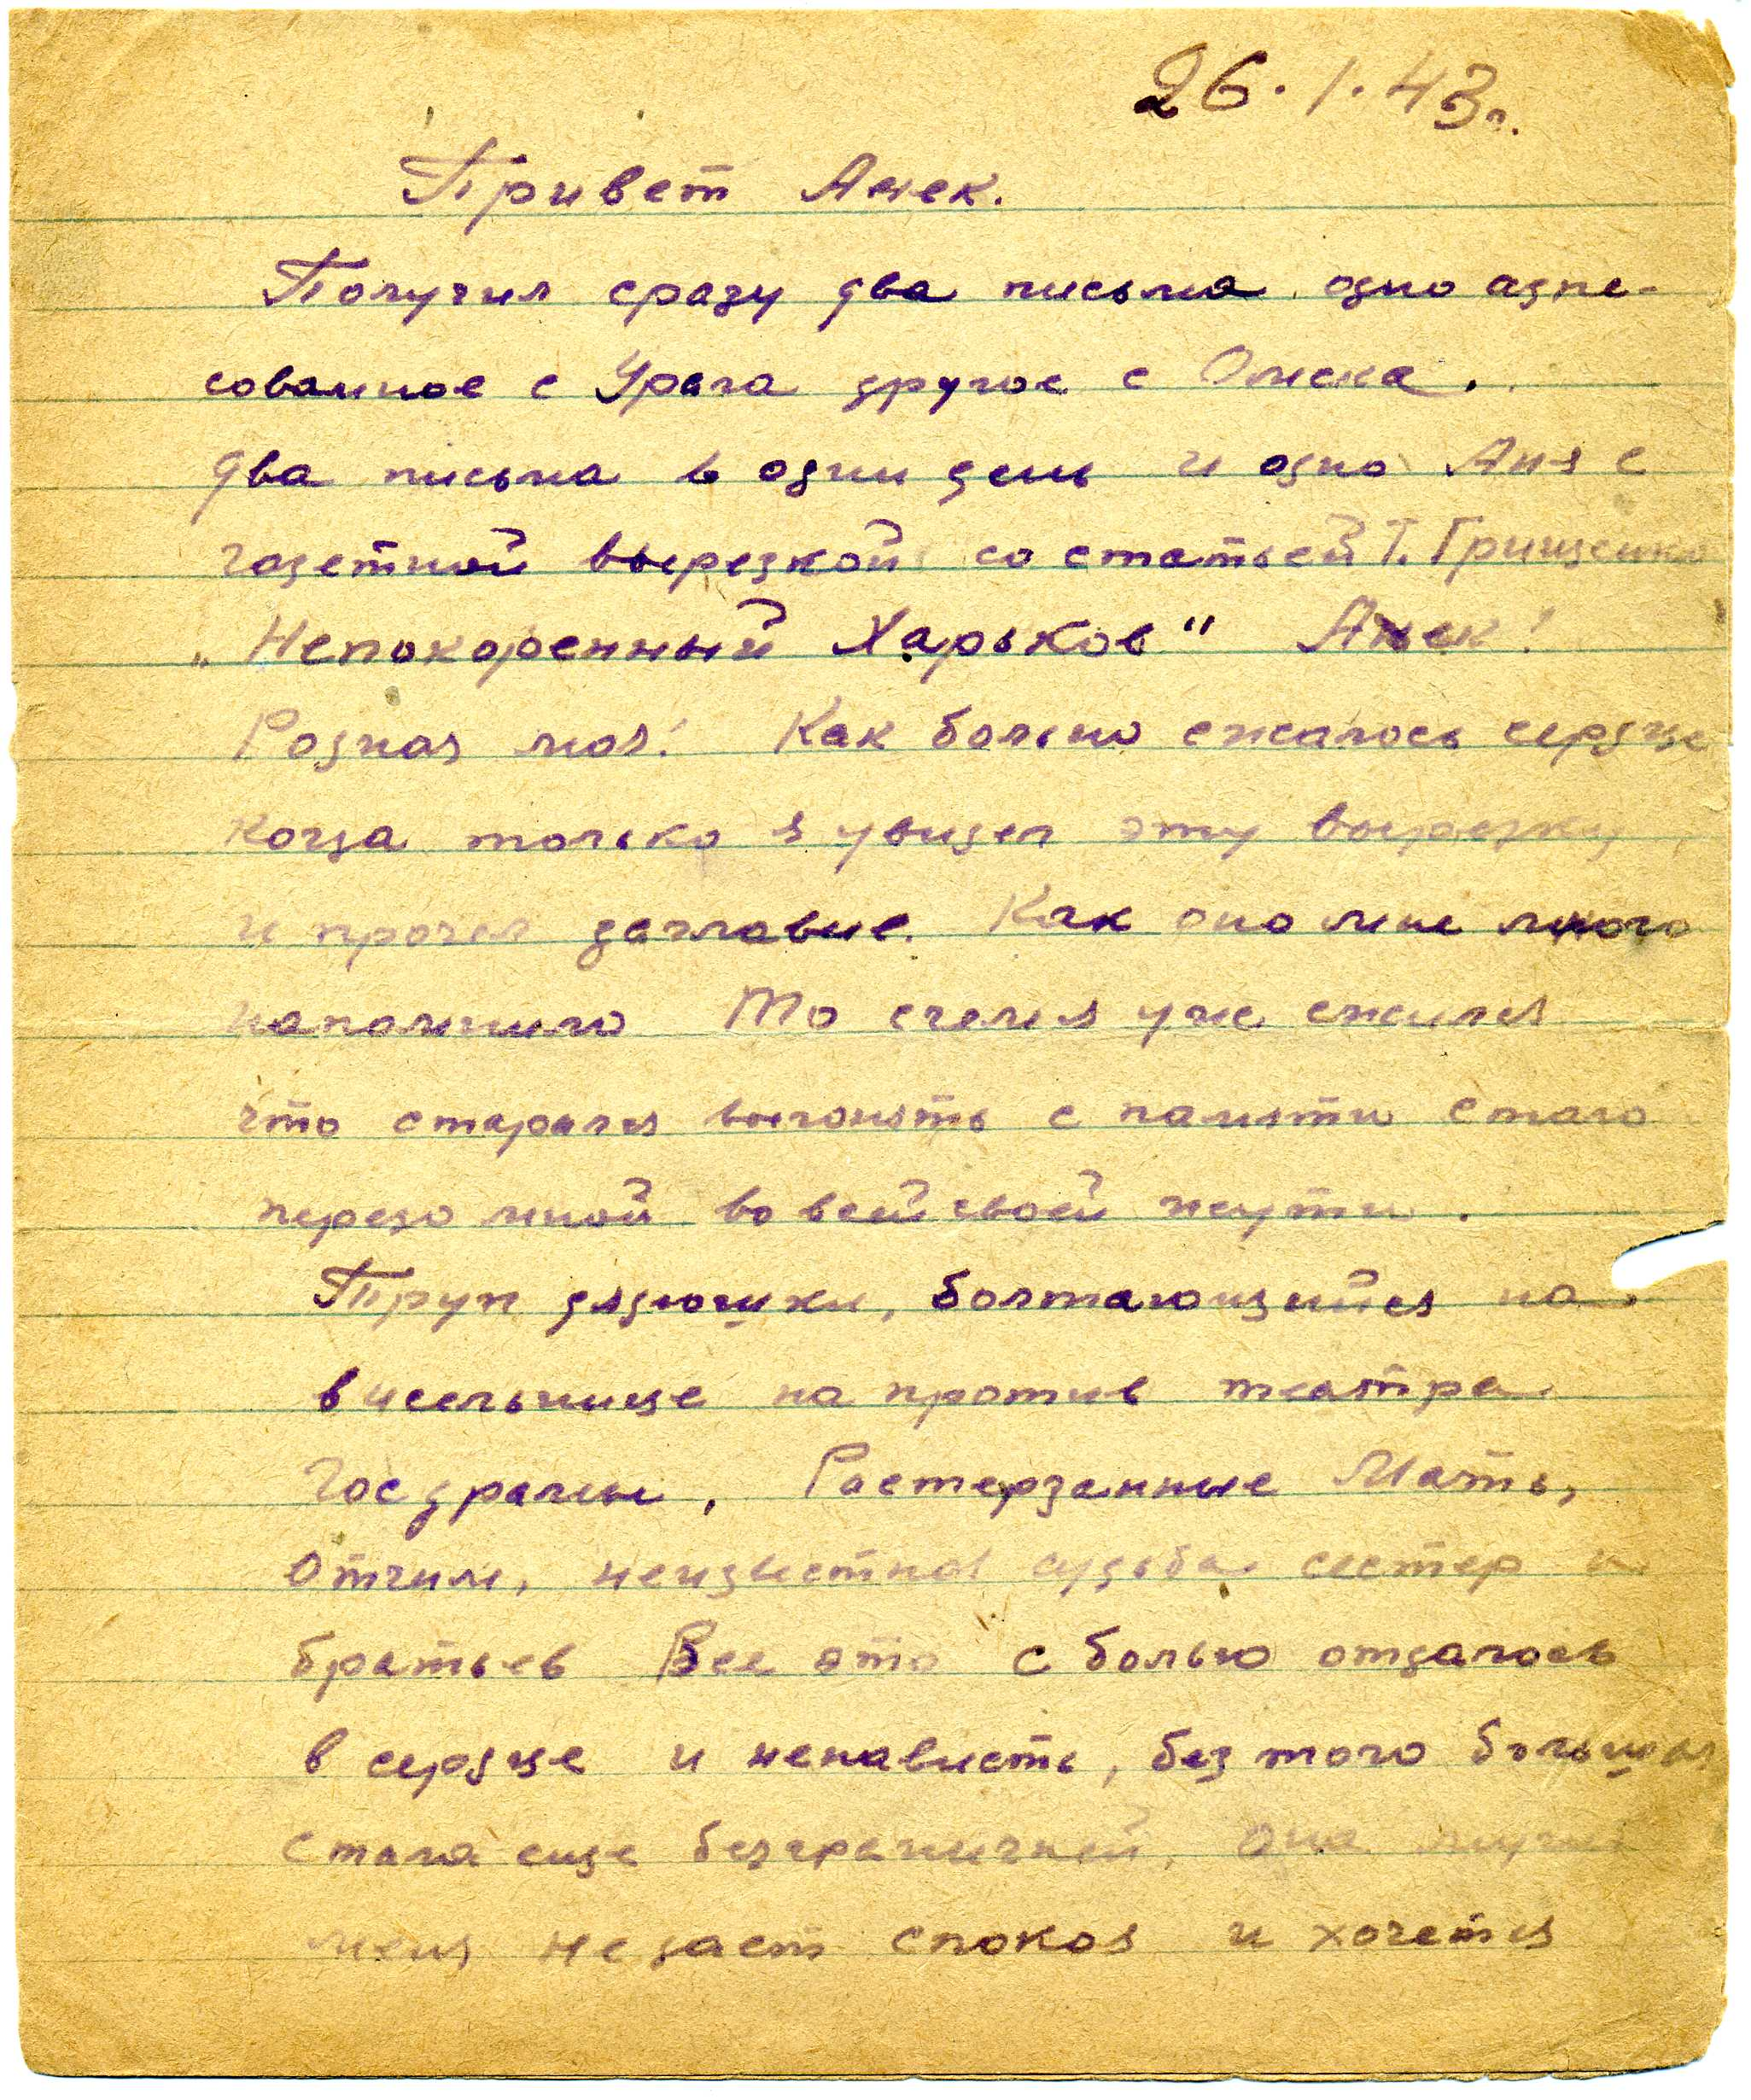 26.1.43г.
Привет Анек.
Получил сразу два письма одно адре-
сованное с Урала другое с Омска.
Два письма в один день и одно Аня с
газетной вырезкой со статьей Т. Грищенко
„Непокоренный Харьков" Анек!
Родная моя! Как больно сжалось сердце
когда только я увидел эту вырезку
и прочел заглавие. Как оно мне много
напомнило То с чем я уже сжился
что старался выгонять с памяти стало
передо мной во всей своей жути.
Труп дядюшки, болтающийся на
висельнице на против театра
Госдрамы, Растерзанные Мать,
Отчим, неизвестная судьба сестер и
братьев Все это с болью отдалось
в сердце и ненависть, без того большая
стала еще безграничней, Она
меня не дает спокоя и хочется